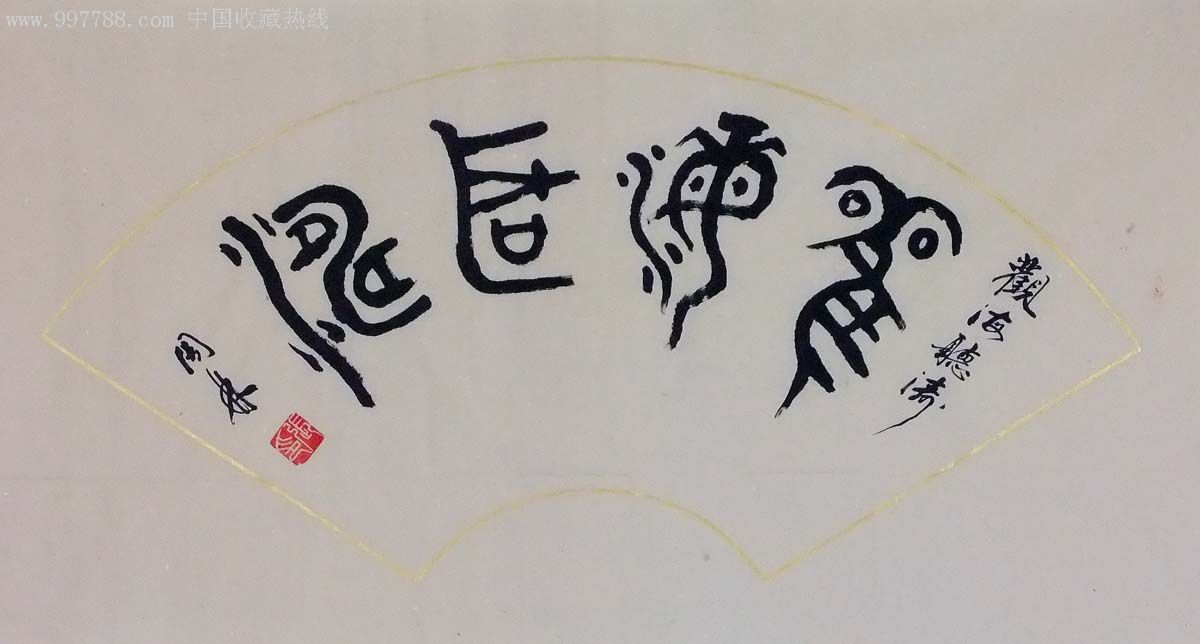 www.997788.com 中国收藏热线
觀海聽濤
觀海聽濤